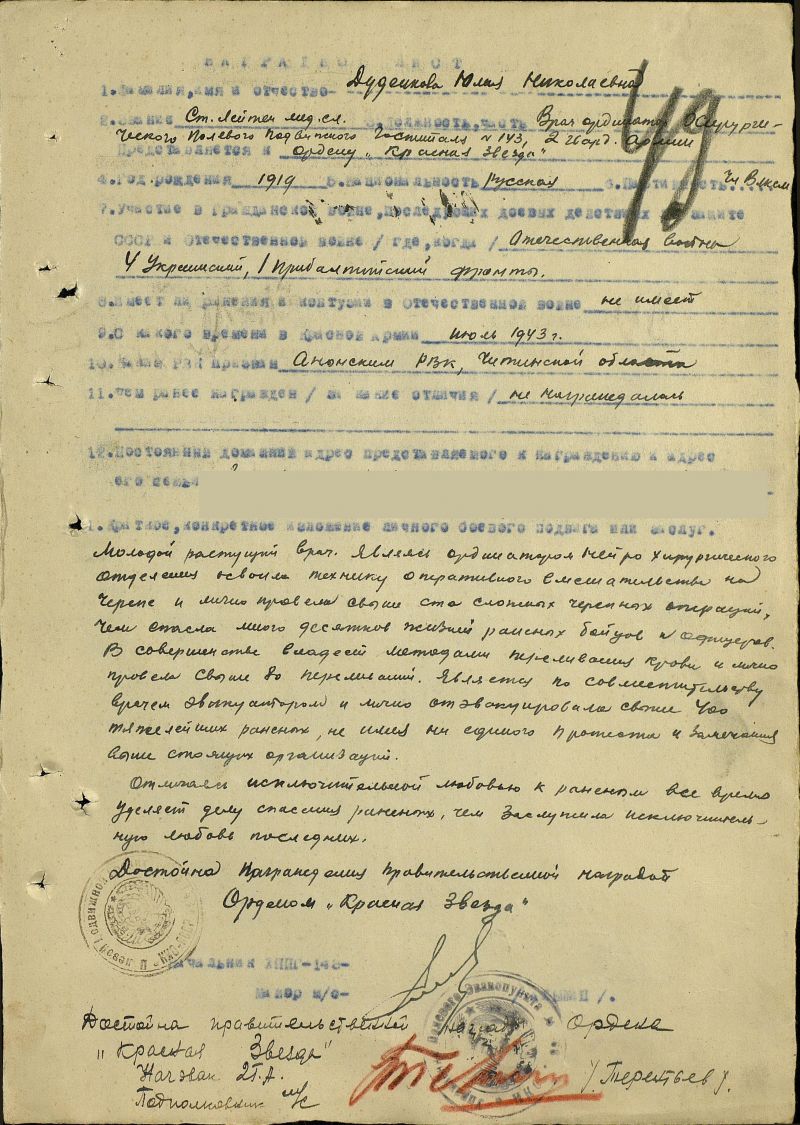 НАГРАДНОЙ ЛИСТ
1. Фамилия, имя и отчество – Дуденкова Юлия Николаевна
49
2. Звание Ст. Лейтен мед. сл. 3. Должность, часть Врач ординатор Хирурги-
ческого Полевого Подвижного Госпиталя № 143, 2 гвард. Армии
Представляется к Ордену „Красная Звезда"
4. Год рождения 1919 5. Национальность Русская 6. Партийность ... Чл Влксм
7. Участие в Гражданской войне, последующих боевых действиях по защите
СССР и Отечественной войне / где, когда / Отечественная война
4 Украинский, 1 Прибалтийский фронты.
8. Имеет ли ранения и контузии в Отечественной войне не имеет
9. С какого времени в Красной Армии июль 1943 г.
10. Каким РВК призван РВК, Читинской области
11. Чем ранее награжден / за какие отличия / не награждалась
12. Постоянный домашний адрес представляемого к награждению и адрес
его семьи
1. Краткое, конкретное изложение личного боевого подвига или заслуг.
Молодой растущий врач. Являясь ординатором Нейро хирургического
отделения освоила технику оперативного вмешательства на
черепе и лично провела свыше ста сложных черепных операций,
чем спасла много десятков жизней раненых бойцов и офицеров.
В совершенстве владеет методами переливания крови и лично
провела свыше переливаний. Является по совместительству
врачем эвакуатором и лично отэвакуировала свыше 400
тяжелейших раненых, не имея ни единого протеста и замечания
выше стоящих организаций.
Отличаясь исключительной любовью к раненым все время
уделяет делу спасения раненых, чем заслужила исключитель-
ную любовь последних.
Достойна Награждения Правительственной наградой
Орденом „Красная Звезда"
Начальник ХППГ-143-
Майор м/с-
Достойна правительственной награды Ордена
„Красная Звезда"
Начэвак 2Г.А.
Подполковник м/с /Терентьев/.